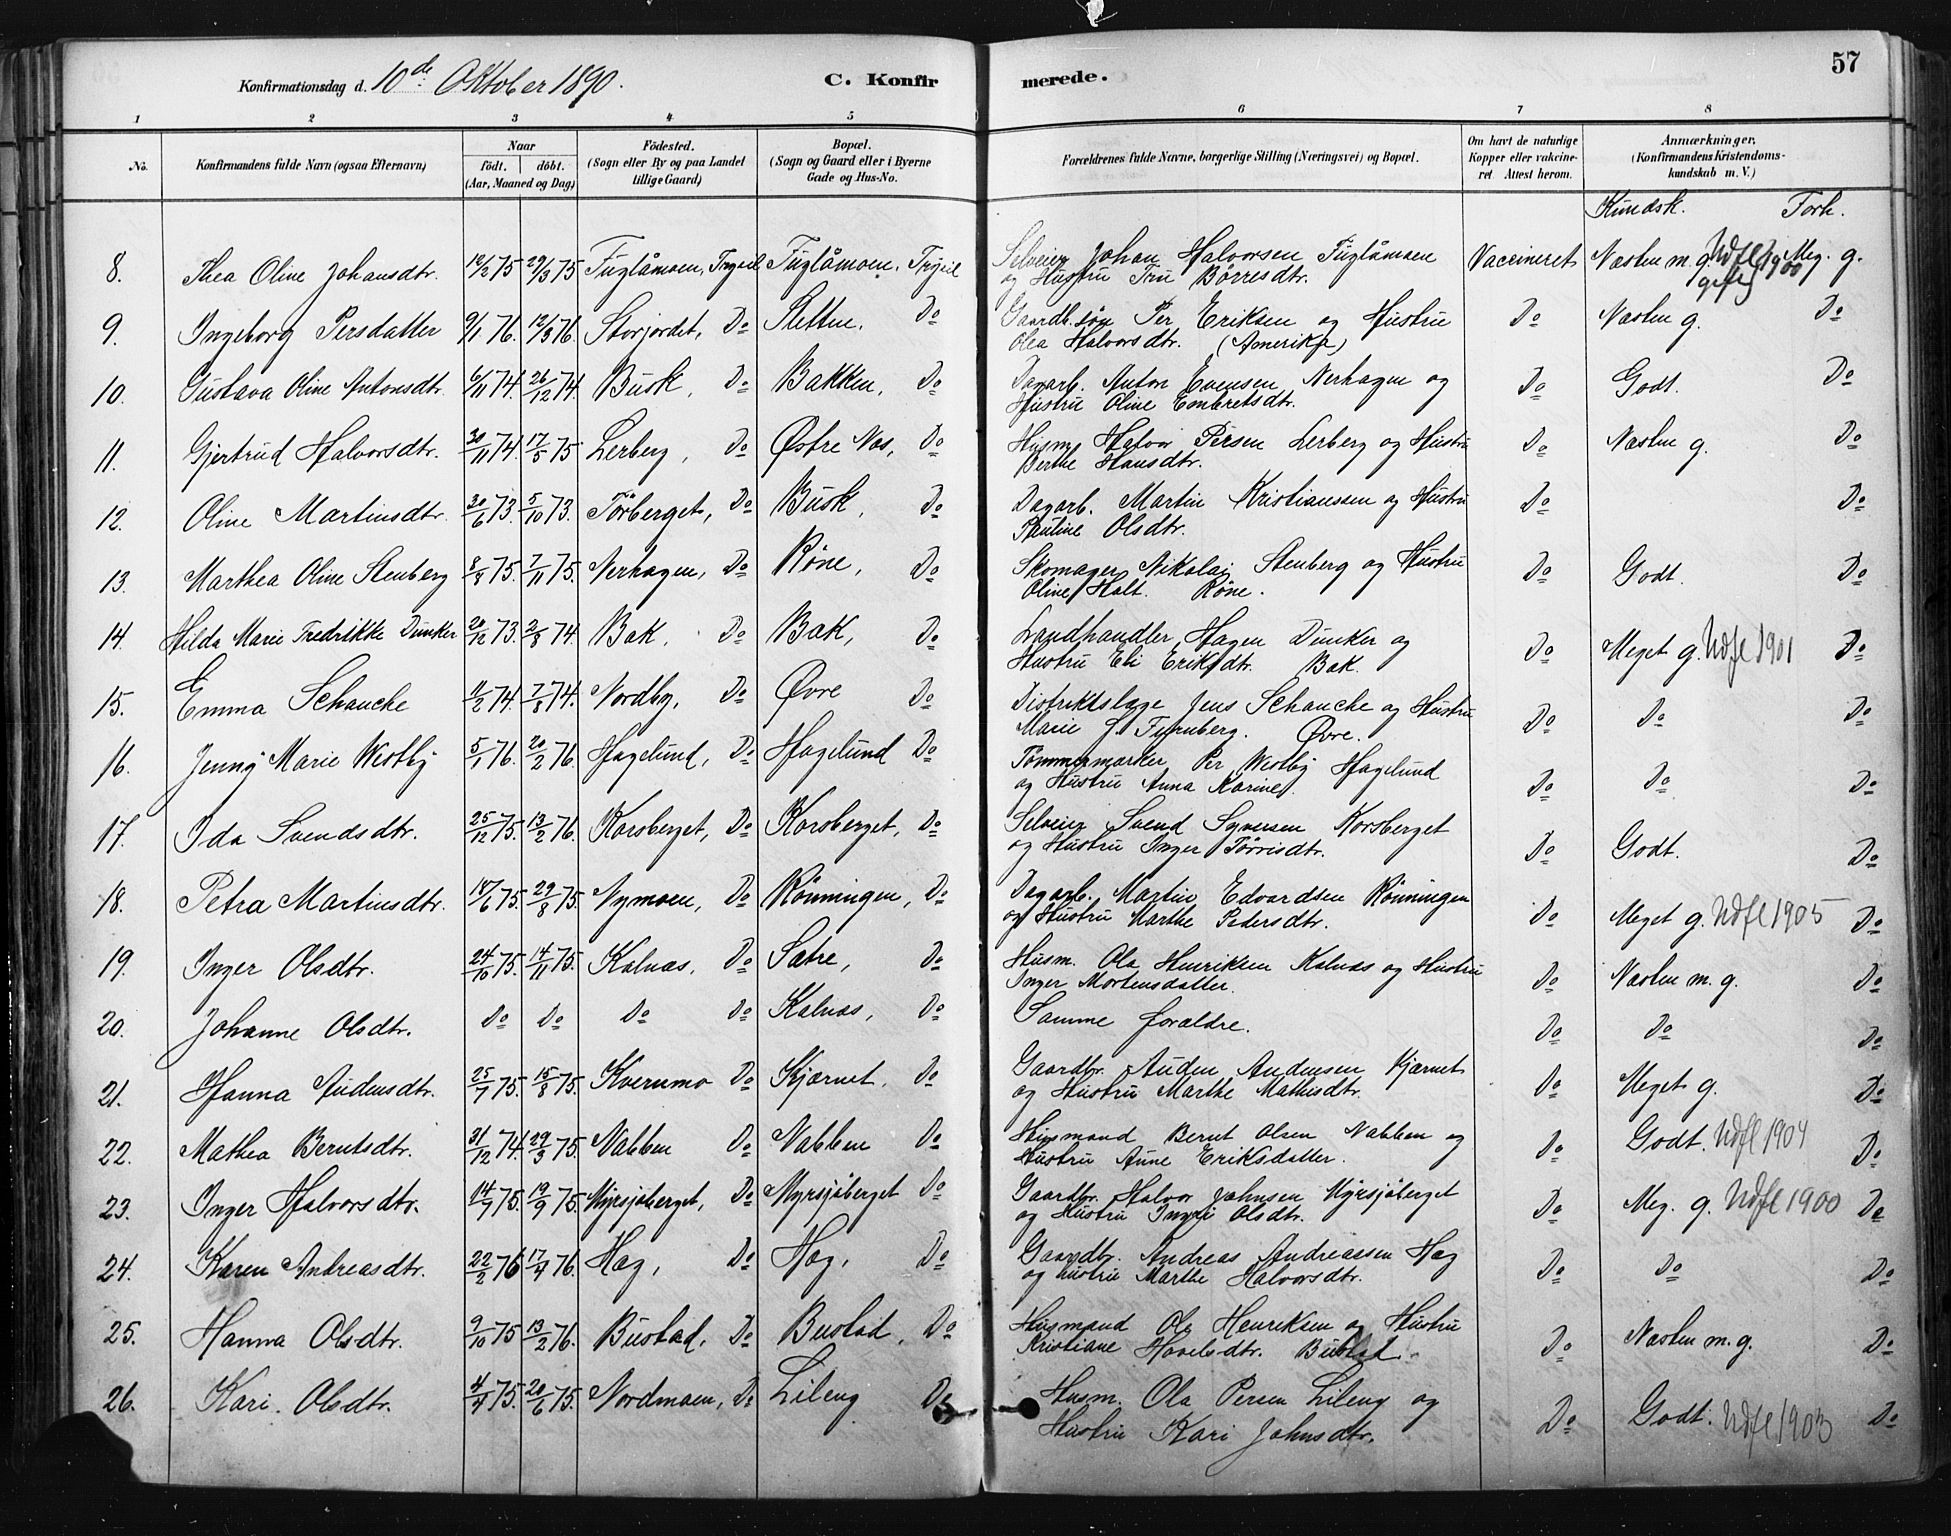 Konfirmationsdag d. 10de Oktober 1890. C. Konfirmerede. 57
1 2 3 4 5 6 7 8
No. Konfirmandens fulde Navn (ogsaa Efternavn) Naar født. døbt. (Aar, Maaned og Dag) Födested. (Sogn eller By og paa Landet tillige Gaard) Bopæl. (Sogn og Gaard eller i Byerne Gade og Hus-No. Forældrenes fulde Navne, borgerlige Stilling (Næringsvei) og Bopæl. Om havt de naturlige Kopper eller vakcineret. Attest herom. Anmærkninger. (Konfirmandens Kristendomskundskab m. V.)
Kundsk. Forh.
8. Thea Oline Johansdtr. 12/2 75 29/3 75 Fuglåmoen, Trysil Fuglåmoen, Trysil Selveier Johan Halvorsen Fuglåmoen Vaccineret Næsten m. g. Udfl 1900 gift Meg. g.
og Hustru Tru Börresdtr.
9. Ingeborg Persdatter 9/1 76. 12/3 76. Storjordet, Do Sletten, Do Gaardb.søn Per Eriksen og Hustru Do Næsten g. Do
Olea Halvorsdtr. (Amerika)
10. Gustava Oline Antonsdtr. 6/11 74. 26/12 74. Busk, Do Bakken, Do Dagarb. Anton Evensen Nerhagen og Do Godt. Do
Hustru Oline Embretsdtr.
11. Gjertrud Halvorsdtr. 30/11 74. 17/5 75 Lerberg, Do Østre Næs, Do Husm. Halvor Persen Lerberg og Hustru Do Næsten g. Do
Berthe Hansdtr.
12. Oline Martinsdtr. 30/6 73. 5/10 73. Törberget, Do Busk, Do Dagarb. Martin Kristianssen og Hustru Do Do
Pauline Olsdtr.
13. Marthea Oline Stenberg 8/8 75. 7/11 75. Nerhagen, Do Röne, Do Skomager Nikolai Stenberg og Hustru Do Godt. Do
Oline Holt. Röne.
14. Hilda Marie Fredrikke Dunker 20/12 73. 2/8 74. Bak, Do Bak, Do Landhandler Hagen Dunker og Do Meget g. Udfl 1901 Do
Hustru Eli Eriksdtr. Bak.
15. Emma Schancke 11/2 74. 7/8 74. Nordby, Do Øvre Do Distriktslæge Jens Schancke og Hustru Do Do Do
Marie Øvre.
16. Jenny Marie Westby 5/1 76. 20/2 76. Hagelund, Do Hagelund Do Tömmermærker Per Westby Hagelund Do Do Do
og Hustru Anna Karine.
17. Ida Svendsdtr. 25/12 75. 13/2 76. Korsberget, Do Korsberget, Do Selveier Svend Syversen Korsberget Do Godt. Do
og Hustru Inger Törrisdtr.
18. Petra Martinsdtr. 18/6 75. 29/8 75. Nymoen, Do Rönningen, Do Dagarb. Martin Edvardsen Rönningen Do Meget g. Udfl 1905 Do
og Hustru Marthe Petersdtr.
19. Inger Olsdtr. 24/10 75. 14/11 75. Kalnæs, Do Sætre, Do Husm. Ola Henriksen Kalnæs og Hustru Do Næsten m. g. Do
Inger Mortensdatter.
20. Johanne Olsdtr. Do Do Do Do Kalnæs, Do Samme forældre. Do Do Do
21. Hanna Audensdtr. 25/7 75. 15/8 75. Kvernmo Do Kjærnet, Do Gaardbr. Auden Audensen Kjærnet Do Meget g. Do
og Hustru Marthe Mathisdtr.
22. Mathea Berntsdtr. 31/12 74. 29/3 75. Nabben Do Nabben Do Husmand Bernt Olsen Nabben og Do Godt. Udfl 1904 Do
Hustru Anne Eriksdatter.
23. Inger Halvorsdtr. 14/7 75. 19/9 75. Myrsjöberget, Do Myrsjöberget Do Gaardbr. Halvor Johnsen Myrsjöberget Do Meg. g. Udfl 1900 Do
og Hustru Ingri Olsdtr.
24. Karen Andreasdtr. 22/2 76 17/4 76. Hag, Do Hag, Do Gaardbr. Andreas Andreassen Hag Do Do Do
og hustru Marthe Halvorsdtr.
25. Hanna Olsdtr. 9/10 75 13/2 76. Bustad, Do Bustad, Do Husmand Ole Henriksen og Hustru Do Næsten m. g. Do
Kristiane Hovelsdtr. Bustad.
26. Kari Olsdtr. 4/4 75. 20/6 75. Nordmoen, Do Lileng Do Husm. Ola Persen Lileng og Do Godt. Udfl 1903 Do
Hustru Kari Johnsdtr.